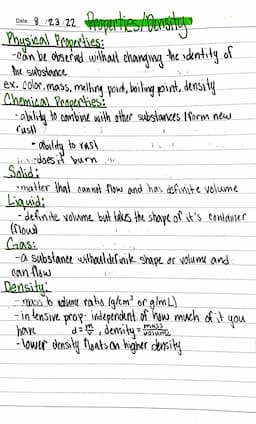 Date 8/23/22 Properties/Density
Physical Properties:
-can be observed without changing the identity of
the substance
ex. color, mass, melting point, boiling point, density
Chemical Properties:
-ability to combine with other substances/form new
-ability to rust
-does it burn
Solid:
-matter that cannot flow and has definite volume
Liquid:
-definite volume but takes the shape of it's container
(flows)
Gas:
-a substance without definite shape or volume and
can flow
Density:
-mass to volume ratio (g/cm³ or g/mL)
-intensive prop- independent of how much of it you
have d=m/v, density=mass/volume
-lower density floats on higher density